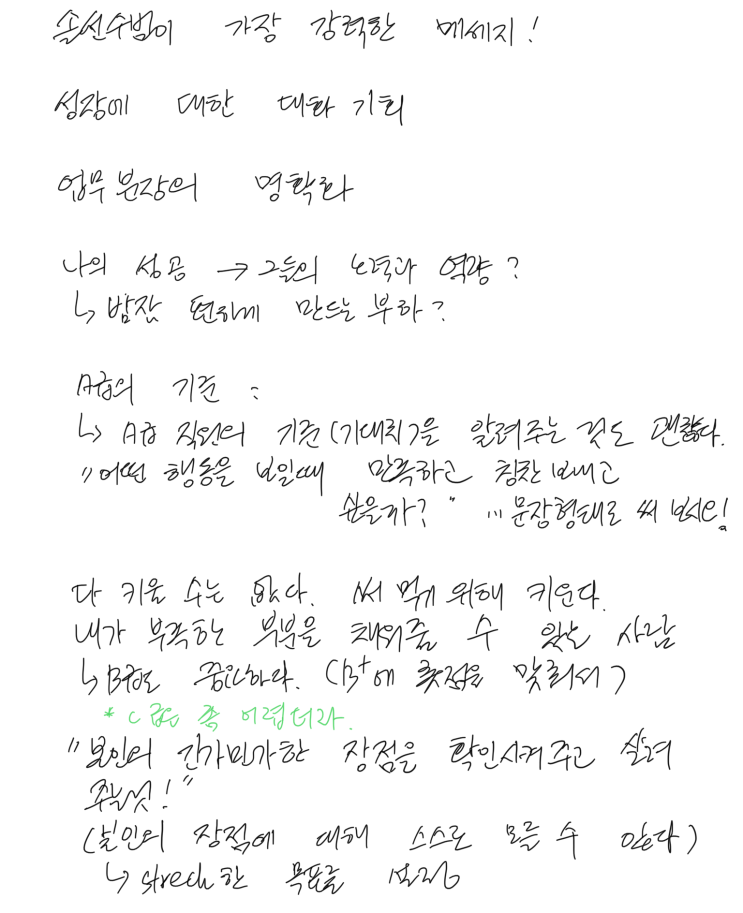 솔선수범이 가장 강력한 메세지!
성장에 대한 대화 기회
업무 분장의 명확화
나의 성공 → 그들의 노력과 역량?
↳ 밤잠 편하게 만드는 부하?
A급의 기준 :
↳ A급 직원의 기준(기대치)을 알려주는 것도 괜찮다.
"어떤 행동을 보일때 만족하고 칭찬 보내고
싶을까?" ... 문장형태로 써 보세요!
다 키울 수는 없다. 써 먹기 위해 키운다.
내가 부족한 부분을 채워줄 수 있는 사람
↳ B급도 중요하다. (B⁺에 촛점을 맞춰서)
* C급은 좀 어렵더라.
"본인의 긴가민가한 장점을 확인시켜주고 살려
주는것!"
(본인의 장점에 대해 스스로 모를 수 있다)
↳ strech한 목표를 설정